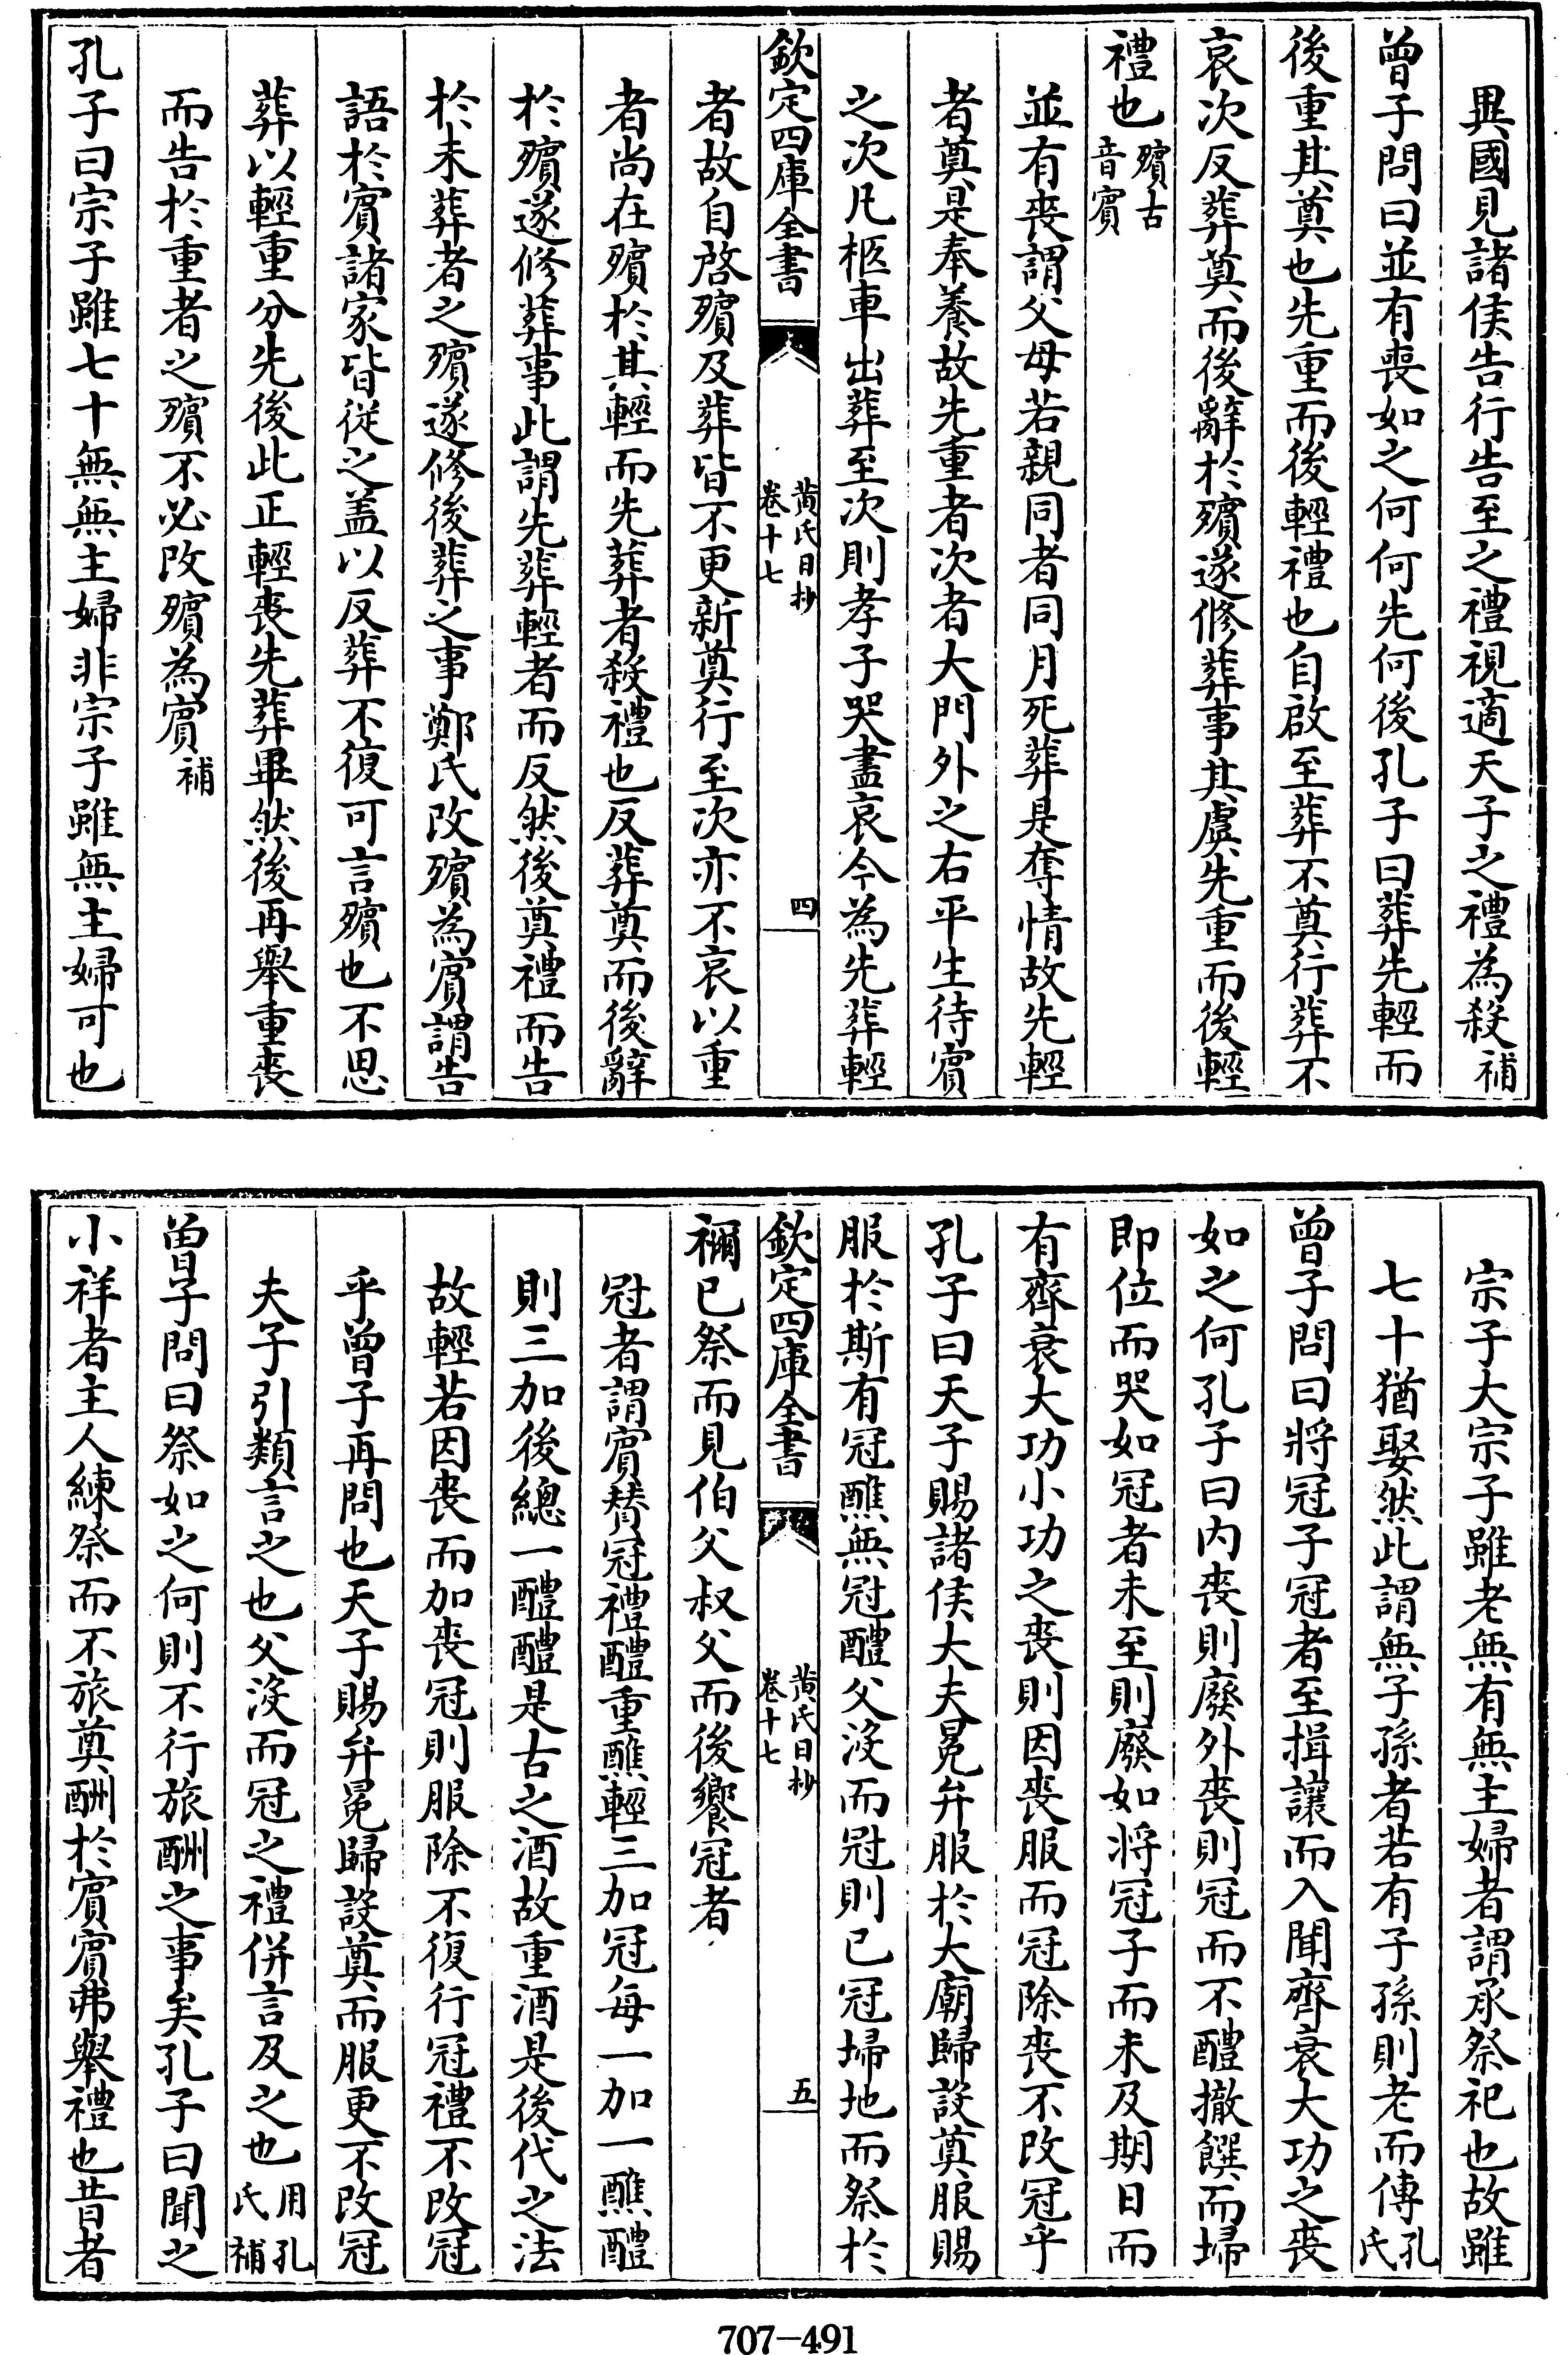 異國見諸侯告行告至之禮視適天子之禮為殺補
曾子問曰並有喪如之何何先何後孔子曰葬先輕而
後重其奠也先重而後輕禮也自啟至葬不奠行葬不
哀次反葬奠而後辭於殯遂修葬事其虞先重而後輕
禮也殯古音賓
並有喪謂父母若親同者同月死葬是奪情故先輕
者奠是奉養故先重者次者大門外之右平生待賓
之次凡柩車出葬至次則孝子哭盡哀今為先葬輕
欽定四庫全書
黃氏日抄
卷十七
四
者故自啓殯及葬皆不更新奠行至次亦不哀以重
者尚在殯於其輕而先葬者殺禮也反葬奠而後辭
於殯遂修葬事此謂先葬輕者而反然後奠禮而告
於未葬者之殯遂修後葬之事鄭氏改殯為賓謂告
語於賓諸家皆從之盖以反葬不復可言殯也不思
葬以輕重分先後此正輕喪先葬畢然後再舉重喪
而告於重者之殯不必改殯為賓補
孔子曰宗子雖七十無無主婦非宗子雖無主婦可也
宗子大宗子雖老無有無主婦者謂承祭祀也故雖
七十猶娶然此謂無子孫者若有子孫則老而傳孔氏
曾子問曰將冠子冠者至揖讓而入聞齊衰大功之喪
如之何孔子曰內喪則廢外喪則冠而不醴撤饌而埽
即位而哭如冠者未至則廢如將冠子而未及期日而
有齊衰大功小功之喪則因喪服而冠除喪不改冠乎
孔子曰天子賜諸侯大夫冕弁服於大廟歸設奠服賜
服於斯有冠醮無冠醴父沒而冠則已冠埽地而祭於
欽定四庫全書
黃氏日抄
卷十七
五
禰已祭而見伯父叔父而後饗冠者
冠者謂賓替冠禮醴重醮輕三加冠每一加一醮醴
則三加後總一醴醴是古之酒故重酒是後代之法
故輕若因喪而加喪冠則服除不復行冠禮不改冠
乎曾子再問也天子賜弁冕歸設奠而服更不改冠
夫子引類言之也父沒而冠之禮併言及之也用孔氏補
曾子問曰祭如之何則不行旅酬之事矣孔子曰聞之
小祥者主人練祭而不旅奠酬於賓賓弗舉禮也昔者
707-491